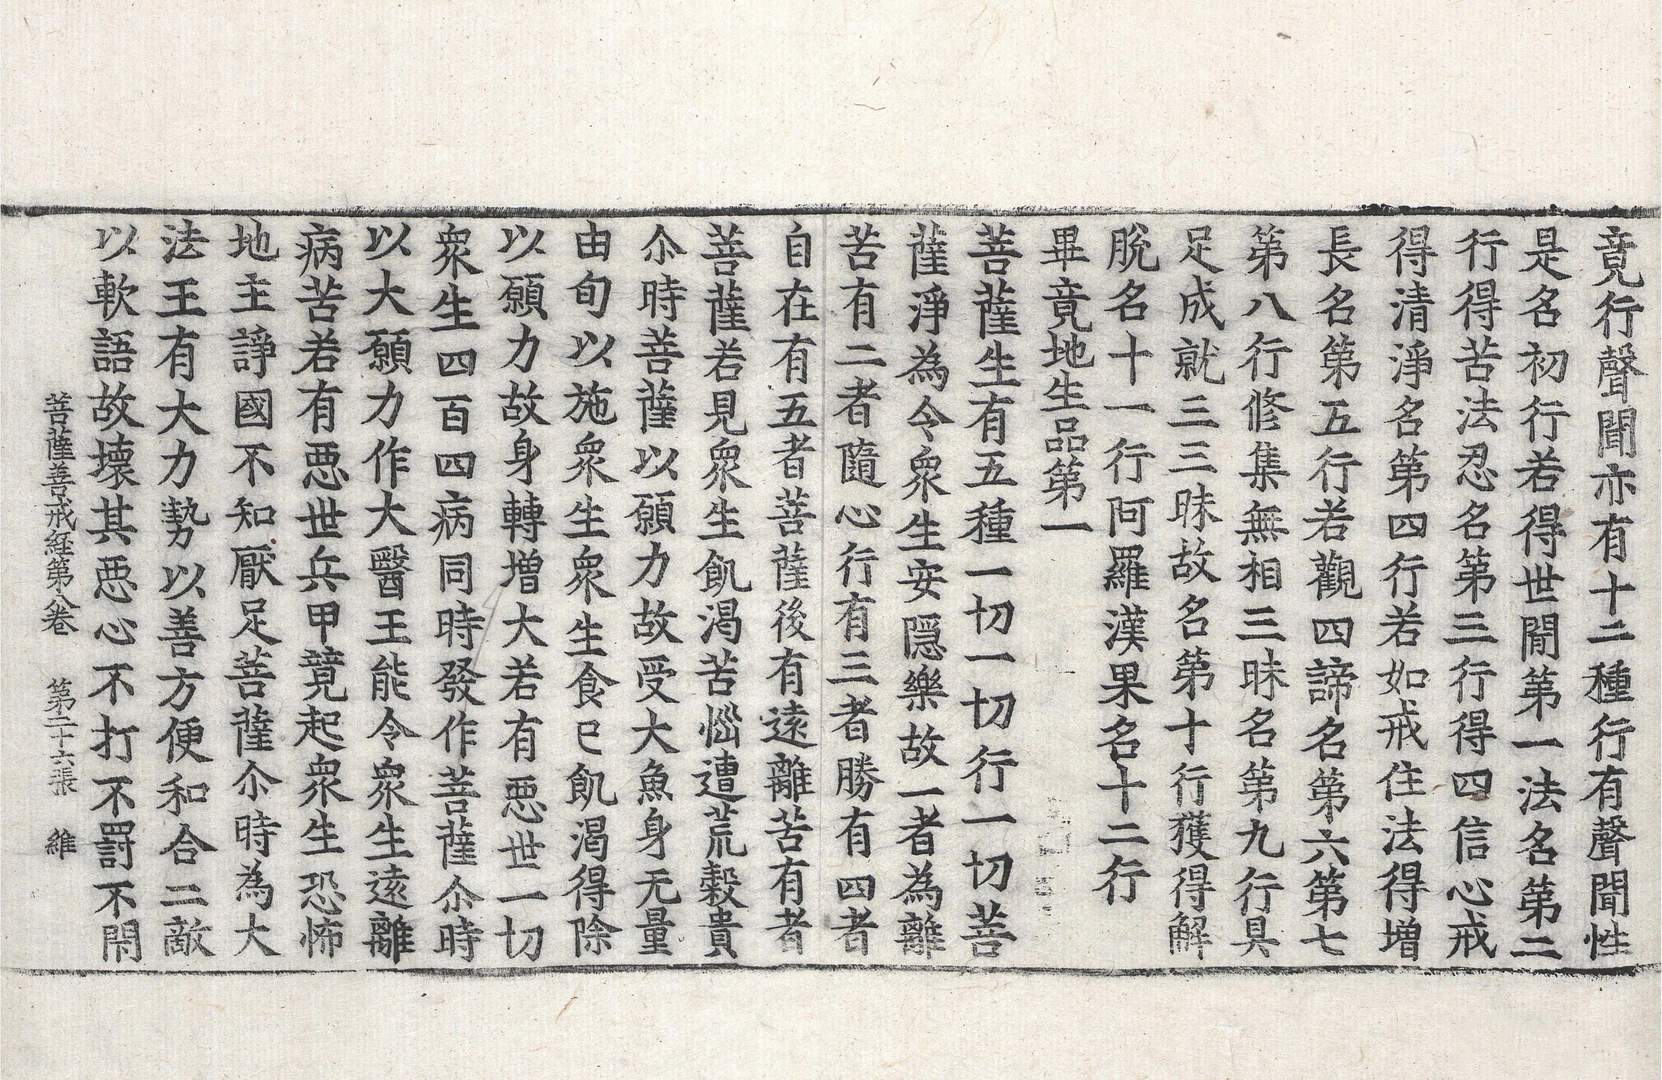 竟行聲聞亦有十二種行有聲聞性
是名初行若得世間第一法名第二
行得苦法忍名第三行得四信心戒
得清淨名第四行若如戒住法得增
長名第五行若觀四諦名第六第七
第八行修集無相三昧名第九行具
足成就三三昧故名第十行獲得解
脫名十一行阿羅漢果名十二行
畢竟地生品第一
菩薩生有五種一切一切行一切菩
薩淨為令衆生安隱樂故一者為離
苦有二者隨心行有三者勝有四者
自在有五者菩薩後有遠離苦有者
菩薩若見衆生飢渴苦惱遭荒穀貴
尒時菩薩以願力故受大魚身无量
由旬以施衆生衆生食已飢渴得除
以願力故身轉增大若有惡世一切
衆生四百四病同時發作菩薩尒時
以大願力作大醫王能令衆生遠離
病苦若有惡世兵甲競起衆生恐怖
地主諍國不知厭足菩薩尒時為大
法王有大力勢以善方便和合二敵
以軟語故壞其惡心不打不罰不閇
菩薩善戒経第八卷　第二十六張　維